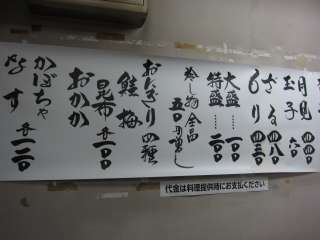 月見 四四〇
玉子 六〇
ざる 四八〇
もり 四三〇
大盛…… 一〇〇
特盛…… 二〇〇
冷し物全品
五〇円増し
おにぎり 四種
鮭 梅
昆布 各一〇〇
おかか
かぼちゃ
なす 各一二〇
代金は料理提供時にお支払ください